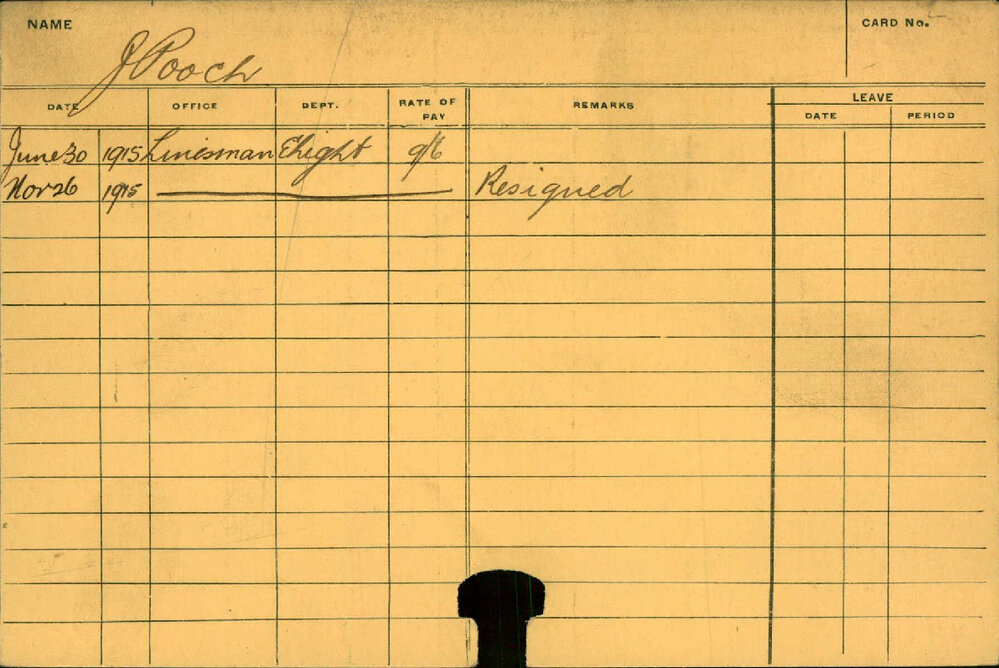 NAME
J Pooch
CARD No.
DATE OFFICE DEPT. RATE OF PAY REMARKS LEAVE
DATE PERIOD
June 30 1915 Linesman Elight 9/6
Nov 26 1915 Resigned